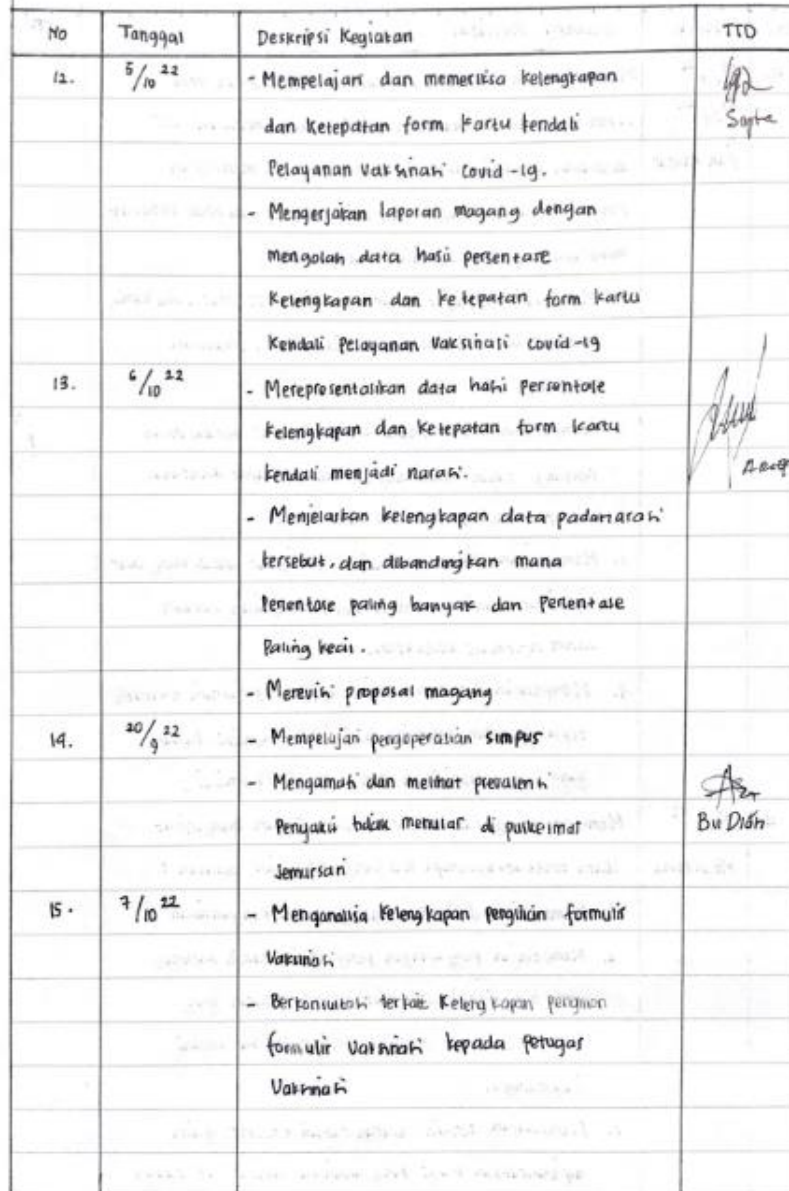 No Tanggal Deskripsi Kegiatan TTD
12. 5/10 22 - Mempelajari dan memeriksa kelengkapan
dan ketepatan form kartu kendali Sapta
Pelayanan Vaksinasi Covid-19.
- Mengerjakan laporan magang dengan
mengolah data hasil persentase
Kelengkapan dan ketepatan form kartu
Kendali Pelayanan Vaksinasi covid-19
13. 6/10 22 - Merepresentasikan data hasil persentase
Kelengkapan dan Ketepatan form kartu
kendali menjadi narasi.
- Menjelaskan kelengkapan data pada narasi
tersebut, dan dibandingkan mana
Persentase paling banyak dan Persentase
Paling kecil.
- Merevisi proposal magang
14. 20/9 22 - Mempelajari pengoperasian simpus
- Mengamati dan melihat prevalensi
Penyakit tidak menular di puskesmas Bu Dian
Jemursari
15. 7/10 22 - Menganalisa Kelengkapan pengisian formulir
Vaksinasi
- Berkonsultasi terkait Kelengkapan pengisian
formulir Vaksinasi kepada petugas
Vaksinasi